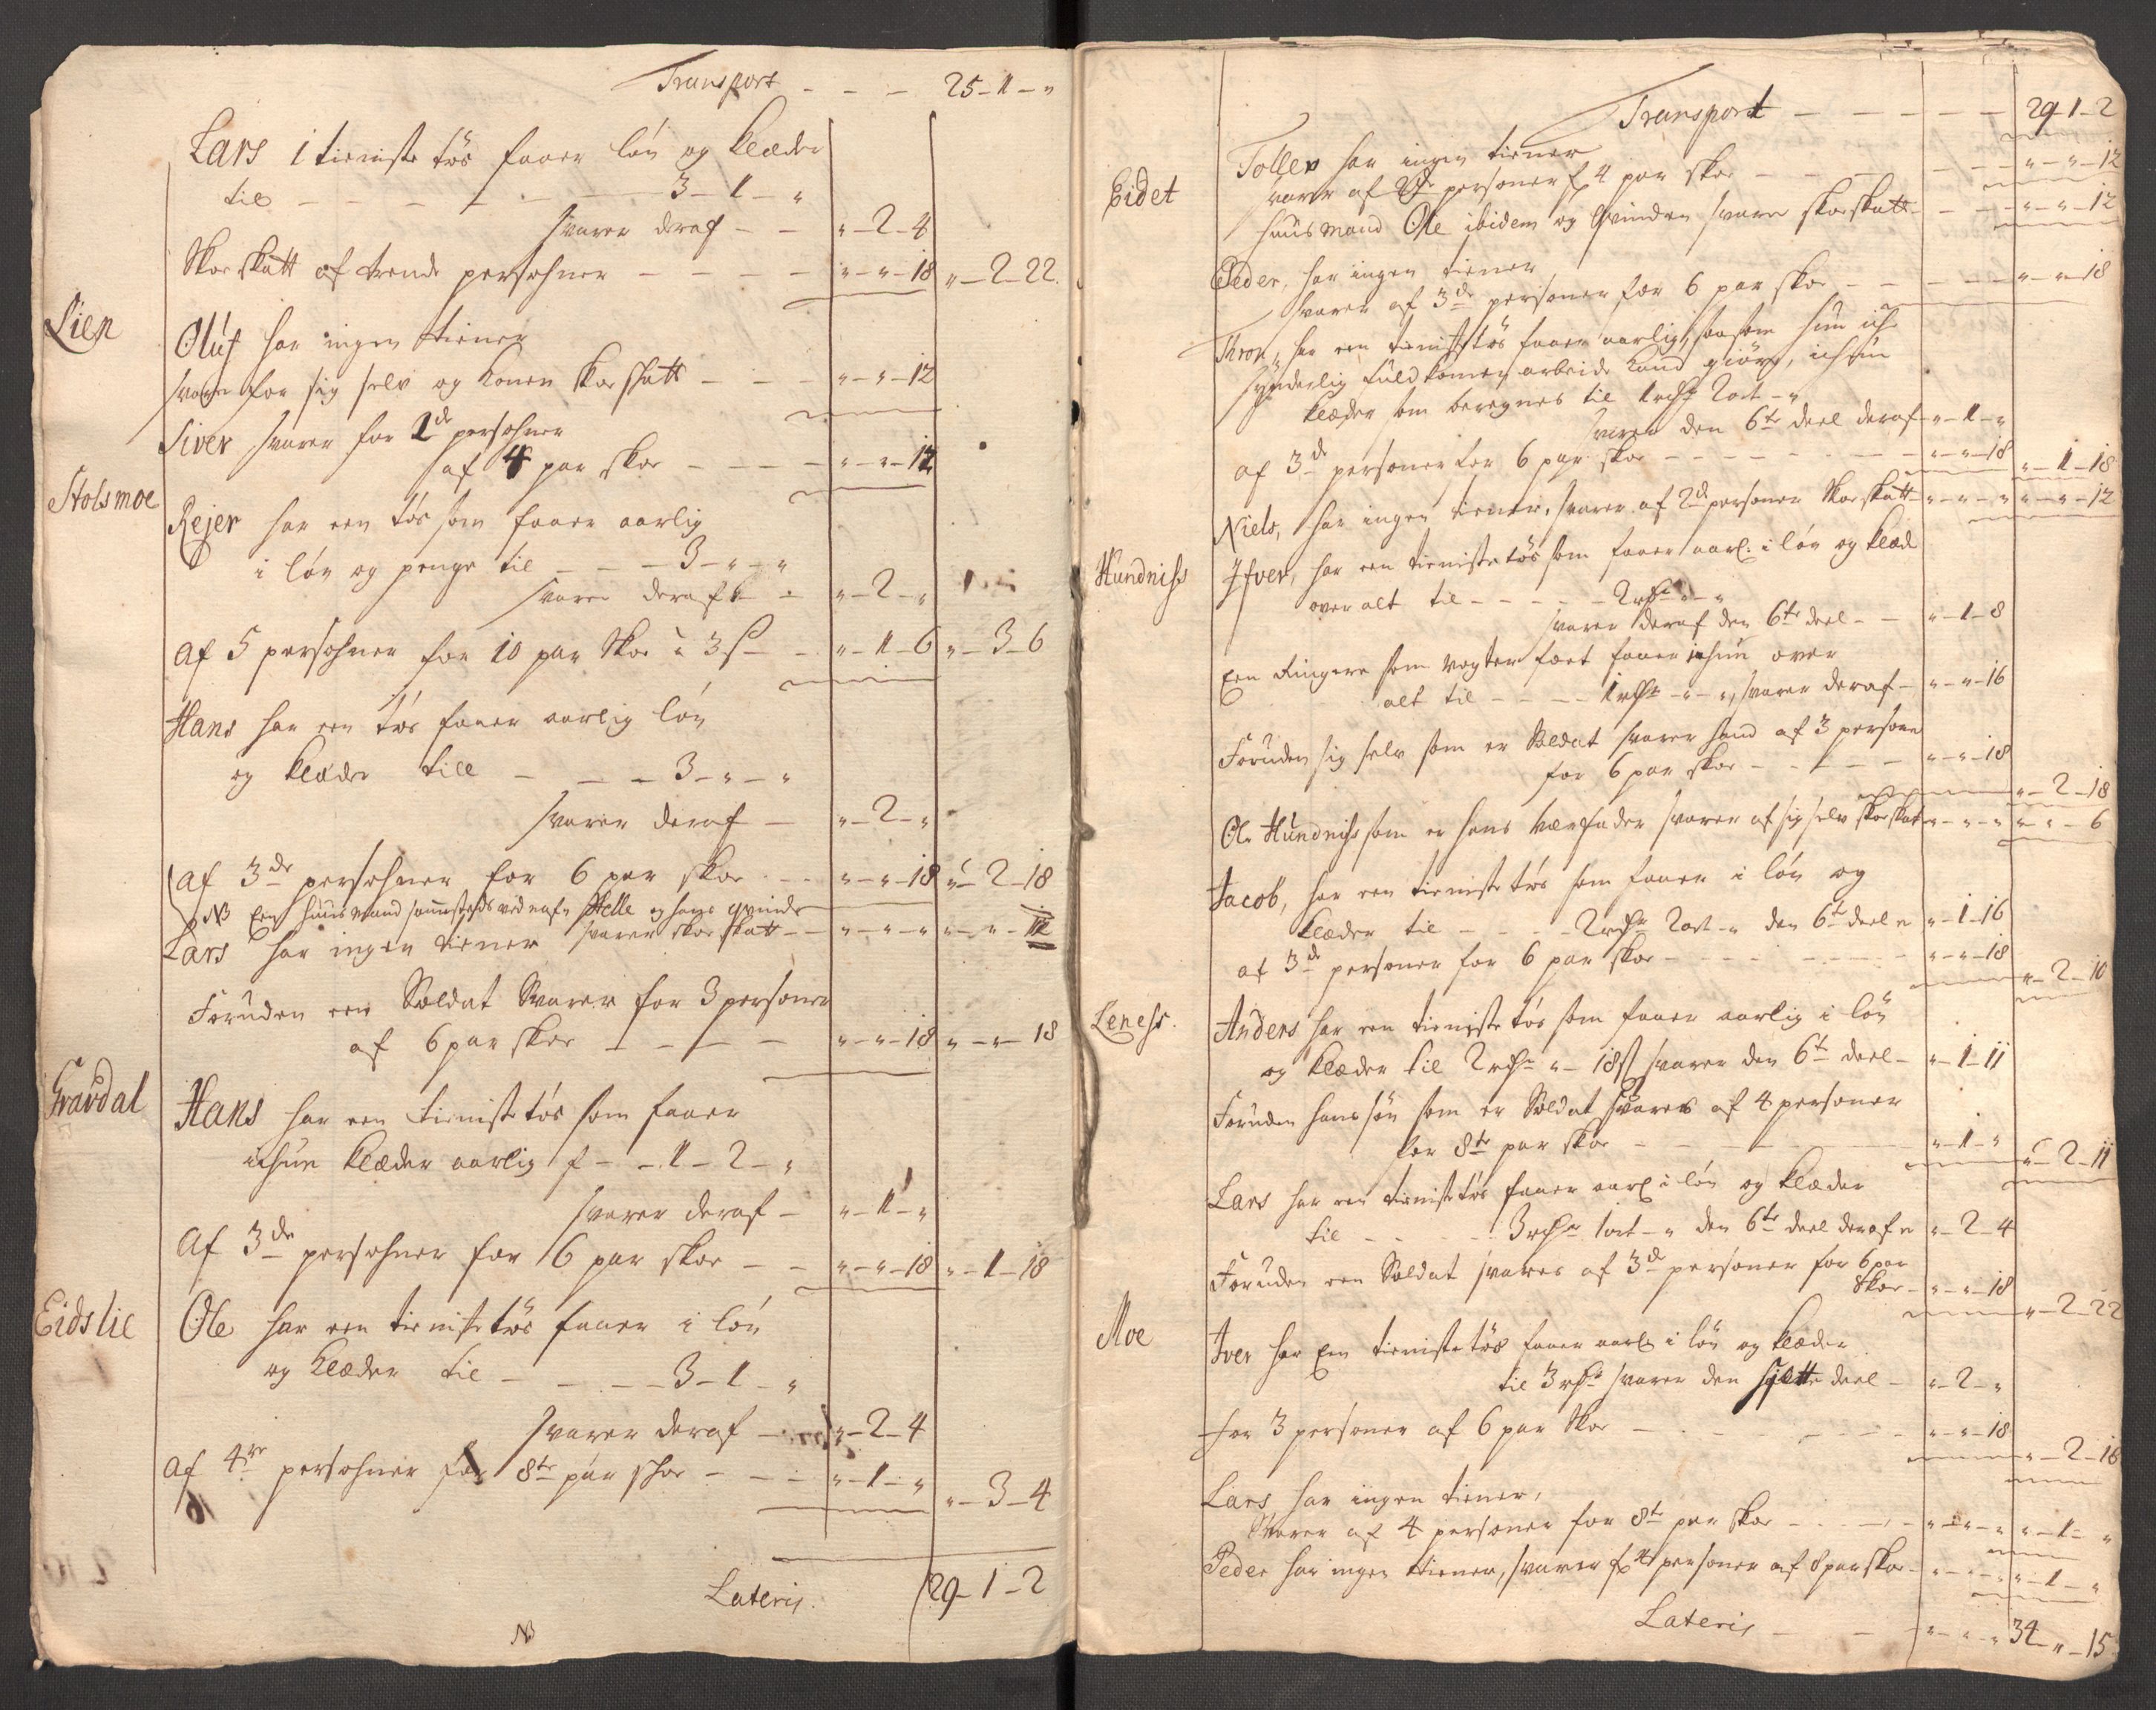 Transport - - - 25-1-"
Lars 1 tieniste tøs faaer løn og klæder
til - - - - - - 3-1-"
svarer deraf - - "-2-4
Skoeskatt af trende persohner - - - - "-"-18 "-2-22.
Lien
Oluf har ingen tiener
svarer for sig selv og konen skoeskatt - - - "-"-12
Siver svarer for 2de persohner
af 4 par skoe - - - - "-"-12
Stolsmoe
Rejer har een tøs som faaer aarlig
i løn og penge til - - - 3-"-"
svarer deraf - - "-2-"
af 5 persohner for 10 par Skoe a 3 s - - "-1-6 "-3-6
Hans har een tøs faaer aarlig løn
og klæder till - - - 3-"-"
svarer deraf - "-2-"
af 3de persohner for 6 par skoe - - "-"-18 "-2-18
NB Een huusmand sammesteds ved nafn Helle og hans qvinde
Lars har ingen tiener svarer skoeskatt - - "-"-" "-"-12
Foruden een Soldat Svarer for 3 personer
af 6 par skoe - - - - "-"-18 "-"-18
Gravdal
Hans har een tieniste tøs som faaer
ichun klæder aarlig f - - 1-2-"
svarer deraf - "-1-"
Af 3de persohner for 6 par skoe - - "-"-18 "-1-18
Eidslie
Ole har een tieniste tøs faaer i løn
og klæder til - - - - 3-1-"
svarer deraf - "-2-4
Af 4re persohner for 8te par skoe - - - "-1-" "-3-4
Lateris. 29-1-2
NB
Transport - - - - - 29-1-2
Eidet
Tollev har ingen tiener
svarer af 2de personer f 4 par skoe - - - - - "-"-12
huusmand Ole ibidem og Qvinden svarer skoeskatt - - - "-"-12
Peder, har ingen tiener
svarer af 3de personer for 6 par skoe - - - - - "-"-18
Thron, har een tienistetøs faaer aarlig, saasom hun iche
synderlig fuldkomen arbeide kand giøre, ichun
klæder som beregnes til 1 rdr 2 ort -"
svarer den 6te deel deraf "-1-"
af 3de personer for 6 par skoe - - - - - - - "-"-18 "-1-18
Niels, har ingen tiener, svarer af 2de personer Skoeskatt "-"-" "-"-12
Hundnihs
Ifver, har een tienistetøs som faaer aarl. i løn og klæd
over alt til - - - - - 2 rdr "-"
svarer deraf den 6te deel - - "-1-8
Een Ringere som vogter fæet faaer ichun over
alt til - - - - 1 rdr -"-", svarer deraf - "-"-16
Foruden sig selv som er Soldat svarer hand af 3 persone
for 6 par skoe - - - - - "-"-18
"-2-18
Ole Hundnihs som er hans værfader svarer af sig selv skoeskat "-"-" "-"-6
Jacob, har een tieniste tøs som faaer i løn og
klæder til - - - - 2 rdr 2 ort -" den 6te deel er "-1-16
af 3de personer for 6 par skoe - - - - - - - "-"-18
"-2-10
Lenehs.
Anders har een tieniste tøs som faaer aarlig i løn
og klæder til 2 rdr "- 18 s svarer den 6te deel - "-1-11
Foruden hans søn som er Soldat svares af 4 personer
for 8te par skoe - - - - - "-1-"
"-2-11
Lars har een tieniste tøs faaer aarl i løn og klæder
til - - - - - 3 rdr 1 ort -" den 6te deel deraf er "-2-4
Foruden een Soldat svares af 3de personer for 6 par
Skoe - "-"-18
"-2-22
Moe
Iver har Een tieniste tøs faaer aarl i løn og klæder
til 3 rdr svarer den siette deel - "-2-"
for 3 personer af 6 par Skoe - - - - - - "-"-18
"-2-18
Lars har ingen tiener,
Svarer af 4 personer for 8te par skoe - - - - "-"-" "-1-"
Peder har ingen tiener, svarer f 4 personer af 8 par skoe - "-"-" "-1-"
Lateris - - "-"-" 34-"-15